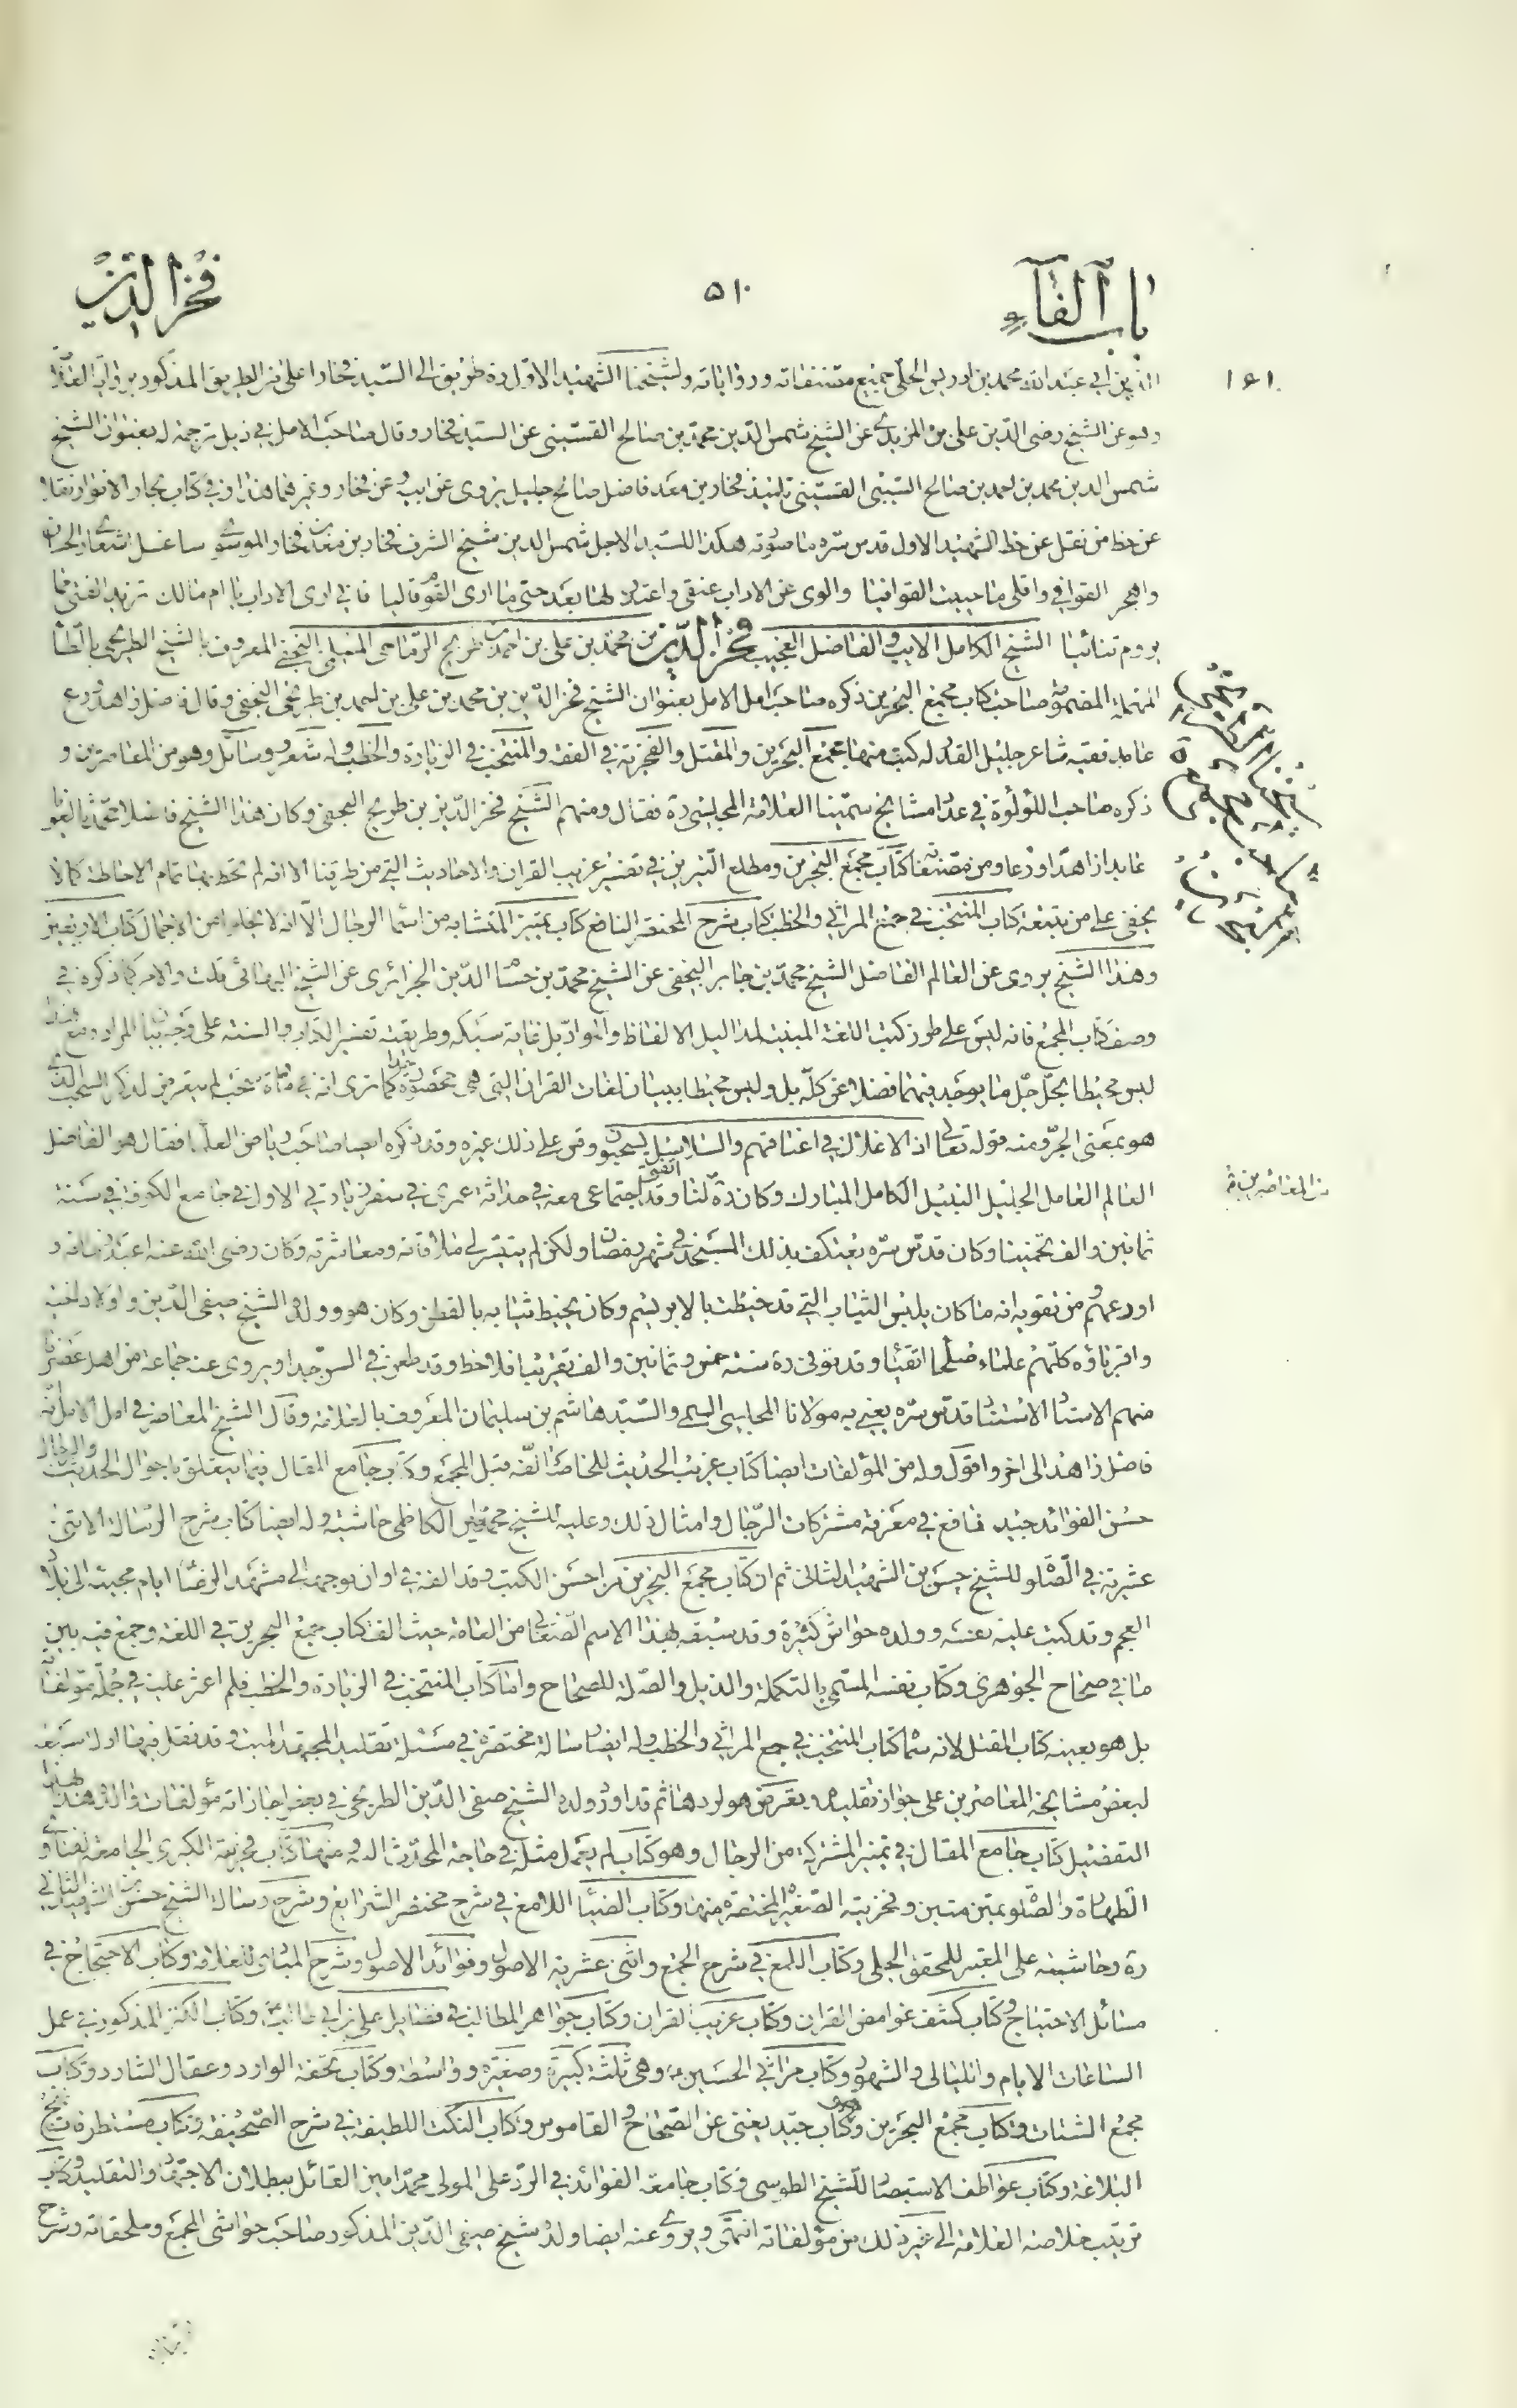 باب الفاء
۵۱۰
فخر الدین
الدین ابی عبد الله محمد بن ادریس الحلی جمیع مصنفاته وروایاته ولشیخنا الشهید الاول ره طریق الی السید فخار اعلی من الطریق المذکور بروایة
وهو عن الشیخ رضی الدین علی بن المزیدی عن الشیخ شمس الدین محمد بن صالح القسینی عن السید فخار وقال صاحب الامل فی ذیل ترجمة له بعنوان الشیخ
شمس الدین محمد بن احمد بن صالح السیبی القسینی تلمیذ فخار بن معد فاضل صالح جلیل یروی عن ابیه وعن فخار وغیرهما هذا وفی کتاب بحار الانوار نقلا
عن خط من نقل عن خط الشهید الاول قدس سره ما صورته هکذا للسید الاجل شمس الدین شیخ الشرف فخار بن معد بن فخار الموسوی ساغسل اشعاری الحسان
واهجر القوافی واقلی ما حییت القوافیا والوی عن الاداب عنقی واعتذر لها بعد حتی ما اری القوم قالیا فانی اری الاداب یا ام مالک تزید الفتی مما
یروم تنائیا الشیخ الکامل الادیب والفاضل العجیب فخر الدین بن محمد بن علی بن احمد بن طریح الرماحی المسلمی النجفی المعروف بالشیخ الطریحی بالطاء
المهملة المضمومة صاحب کتاب مجمع البحرین ذکره صاحب امل الامل بعنوان الشیخ فخر الدین بن محمد بن علی بن احمد بن طریحی النجفی وقال فاضل زاهد ورع
عابد فقیه شاعر جلیل القدر له کتب منها مجمع البحرین والمقتل والفخریة فی الفقه والمنتخب فی الزیارة والخطب وله شعر ورسائل وهو من المعاصرین و
ذکره صاحب اللؤلؤة فی عداد مشایخ سمینا العلامة المجلسی ره فقال ومنهم الشیخ فخر الدین بن طریح النجفی وکان هذا الشیخ فاضلا محدثا لغویا
عابدا زاهدا ورعا ومن مصنفاته کتاب مجمع البحرین ومطلع النیرین فی تفسیر غریب القران والاحادیث التی من طرقنا الا انه لم یحط بها تمام الاحاطة کما لا
یخفی علی من تتبعه کتاب المنتخب فی جمع المراثی والخطب کتاب شرح المختصر النافع کتاب تمییز المتشابه من اسماء الرجال الا انه لا یخلو من الاجمال کتاب الاربعین
وهذا الشیخ یروی عن العالم الفاضل الشیخ محمد بن جابر النجفی عن الشیخ محمد بن حسام الدین الجزائری عن الشیخ البهائی قلت والامر کما ذکره فی
وصف کتاب المجمع فانه لیس علی طرز کتب اللغة المبنیة لمدالیل الالفاظ والمواد بل غایة سبکه وطریقته تفسیر الکتاب والسنة علی وجه بیان المراد ومع هذا
لیس محیطا بجل جل ما یوجد فیهما فضلا عن کله بل ولیس محیطا ببیان لغات القران التی هی محصورة جدا کما تری انه فی مادة سحب لم یتعرض لذکر السحب الذی
هو بمعنی الجر ومنه قوله تعالی اذ الاغلال فی اعناقهم والسلاسل یسحبون وقس علی ذلک غیره وقد ذکره ایضا صاحب ریاض العلماء فقال هو الفاضل
العالم العامل الجلیل النبیل الکامل المبارک وکان ره لنا وقد اتفق اجتماعی معه فی حداثة عمری فی سفر زیارتی الاول فی جامع الکوفة فی سنة
ثمانین والف تخمینا وکان قدس سره یعتکف بذلک المسجد فی شهر رمضان ولکن لم یتیسر لی ملاقاته ومعاشرته وکان رضی الله عنه اعبد زمانه و
اورعهم ومن تقویه انه ما کان یلبس الثیاب التی قد خیطت بالابریسم وکان یخیط ثیابه بالقطن وکان هو وولده الشیخ صفی الدین واولاد اخیه
واقرباؤه کلهم علماء صلحاء اتقیاء وقد توفی ره سنة خمس وثمانین والف تقریبا فلاحظ وقد طعن فی السن جدا ویروی عنه جماعة من اهل عصرنا
منهم الاستاد الاستناد قدس سره یعنی به مولانا المجلسی السمی والسید هاشم بن سلیمان المعروف بالعلامة وقال الشیخ المعاصر فی امل الامل انه
فاضل زاهد الی اخره واقول وله من المؤلفات ایضا کتاب غریب الحدیث للخاصة الفه قبل المجمع وکتاب جامع المقال فیما یتعلق باحوال الحدیث والرجال
حسن الفوائد جید نافع فی معرفة مشترکات الرجال وامثال ذلک وعلیه للشیخ محمد امین الکاظمی حاشیة وله ایضا کتاب شرح الرسالة الاثنی
عشریة فی الصلوة للشیخ حسن بن الشهید الثانی ثم ان کتاب مجمع البحرین من احسن الکتب وقد الفه فی اوان توجهه الی مشهد الرضا ایام مجیئه الی بلاد
العجم وقد کتب علیه نفسه وولده حواش کثیرة وقد سبقه لهذا الاسم الصغانی من العامة حیث الف کتاب مجمع البحرین فی اللغة وجمع فیه بین
ما فی صحاح الجوهری وکتاب نفسه المسمی بالتکملة والذیل والصلة للصحاح واما کتاب المنتخب فی الزیارة والخطب فلم اعثر علیه فی جملة مؤلفاته
بل هو بعینه کتاب المقتل لانه سماه کتاب المنتخب فی جمع المراثی والخطب وله ایضا رسالة مختصرة فی مسئلة تقلید المجتهد المیت وقد نقل فیها
لبعض مشایخه المعاصرین علی جواز تقلیده وتعرض هو لردها ثم قد اورد ولده الشیخ صفی الدین الطریحی فی بعض اجازاته مؤلفات والده بهذا
التفصیل کتاب جامع المقال فی تمییز المشترکة من الرجال وهو کتاب لم یعمل مثله فی حاجة المحدث الیه ومنها کتاب فخریته الکبری الجامعة لفتاوی
الطهارة والصلوة بمتن متین وفخریته الصغیرة المختصرة منها وکتاب الضیاء اللامع فی شرح مختصر الشرایع وشرح رسالة الشیخ حسن بن الشهید الثانی
ره وحاشیته علی المعتبر للمحقق الحلی وکتاب اللمع فی شرح الجمع واثنی عشریة الاصول وفوائد الاصول وشرح المبادی للعلامة وکتاب الاحتجاج فی
مسائل الاحتیاج وکتاب کشف غوامض القران وکتاب غریب القران وکتاب جواهر المطالب فی فضایل علی بن ابی طالب ع وکتاب الکنز المذکور فی عمل
الساعات الایام واللیالی والشهور وکتاب مراثی الحسین ع وهی ثلثة کبیرة وصغیرة وواسطة وکتاب تحفة الوارد وعقال الشارد وکتاب
مجمع الشتات وکتاب مجمع البحرین وهو کتاب جید یغنی عن الصحاح والقاموس وکتاب النکت اللطیفة فی شرح الصحیفة وکتاب مستطرف نهج
البلاغة وکتاب عواطف الاستبصار للشیخ الطوسی وکتاب جامعة الفوائد فی الرد علی المولی محمد امین القائل ببطلان الاجتهاد والتقلید وکتاب
ترتیب خلاصة العلامة الی غیر ذلک من مؤلفاته انتهی ویروی عنه ایضا ولده شیخ صفی الدین المذکور صاحب حواشی المجمع وملحقاته وشرح